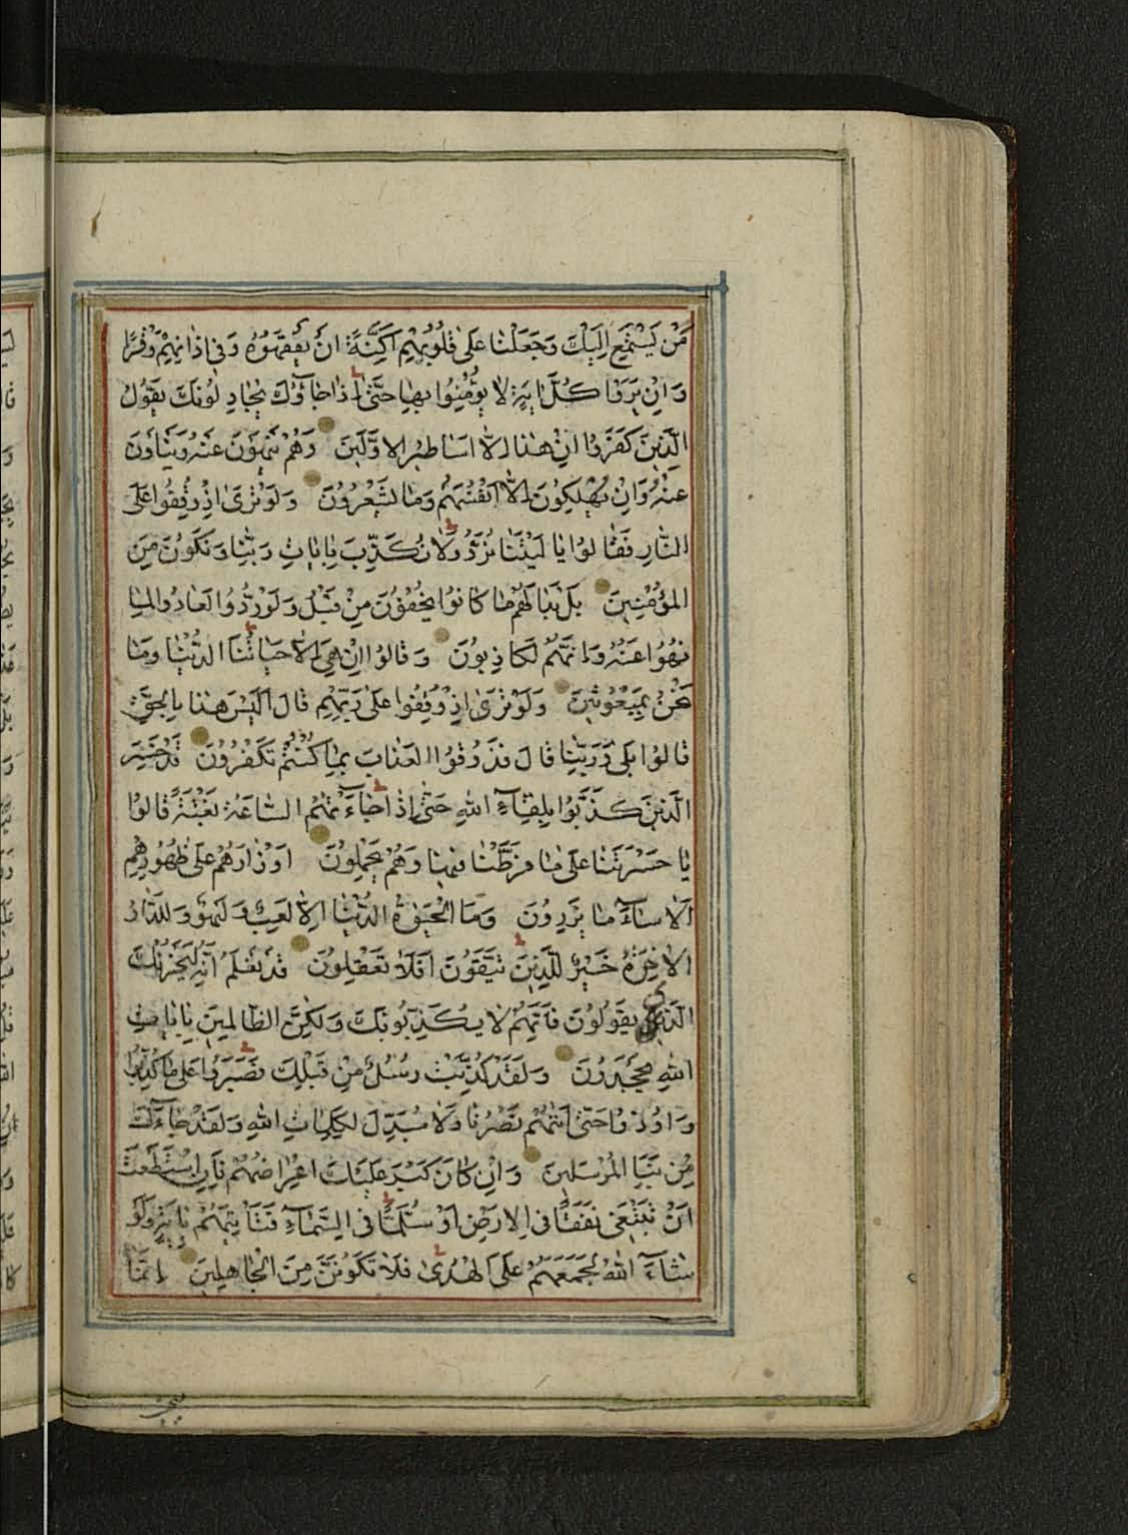 مَنْ يَسْتَمِعُ اِلَيْكَ وَجَعَلْنَا عَلٰى قُلُوبِهِمْ اَكِنَّةً اَنْ يَفْقَهُوهُ وَفٖى اٰذَانِهِمْ وَقْرًا
وَاِنْ يَرَوْا كُلَّ اٰيَةٍ لَا يُؤْمِنُوا بِهَا حَتّٰى اِذَا جَاؤُكَ يُجَادِلُونَكَ يَقُولُ
الَّذٖينَ كَفَرُوا اِنْ هٰذَا اِلَّا اَسَاطٖيرُ الْاَوَّلٖينَ وَهُمْ يَنْهَوْنَ عَنْهُ وَيَنْاَوْنَ
عَنْهُ وَاِنْ يُهْلِكُونَ اِلَّا اَنْفُسَهُمْ وَمَا يَشْعُرُونَ وَلَوْ تَرٰى اِذْ وُقِفُوا عَلَى
النَّارِ فَقَالُوا يَا لَيْتَنَا نُرَدُّ وَلَا نُكَذِّبَ بِاٰيَاتِ رَبِّنَا وَنَكُونَ مِنَ
الْمُؤْمِنٖينَ بَلْ بَدَا لَهُمْ مَا كَانُوا يُخْفُونَ مِنْ قَبْلُ وَلَوْ رُدُّوا لَعَادُوا لِمَا
نُهُوا عَنْهُ وَاِنَّهُمْ لَكَاذِبُونَ وَقَالُوا اِنْ هِىَ اِلَّا حَيَاتُنَا الدُّنْيَا وَمَا
نَحْنُ بِمَبْعُوثٖينَ وَلَوْ تَرٰى اِذْ وُقِفُوا عَلٰى رَبِّهِمْ قَالَ اَلَيْسَ هٰذَا بِالْحَقِّ
قَالُوا بَلٰى وَرَبِّنَا قَالَ فَذُوقُوا الْعَذَابَ بِمَا كُنْتُمْ تَكْفُرُونَ قَدْ خَسِرَ
الَّذٖينَ كَذَّبُوا بِلِقَاءِ اللّٰهِ حَتّٰى اِذَا جَاءَتْهُمُ السَّاعَةُ بَغْتَةً قَالُوا
يَا حَسْرَتَنَا عَلٰى مَا فَرَّطْنَا فٖيهَا وَهُمْ يَحْمِلُونَ اَوْزَارَهُمْ عَلٰى ظُهُورِهِمْ
اَلَا سَاءَ مَا يَزِرُونَ وَمَا الْحَيٰوةُ الدُّنْيَا اِلَّا لَعِبٌ وَلَهْوٌ وَلَلدَّارُ
الْاٰخِرَةُ خَيْرٌ لِلَّذٖينَ يَتَّقُونَ اَفَلَا تَعْقِلُونَ قَدْ نَعْلَمُ اِنَّهُ لَيَحْزُنُكَ
الَّذٖى يَقُولُونَ فَاِنَّهُمْ لَا يُكَذِّبُونَكَ وَلٰكِنَّ الظَّالِمٖينَ بِاٰيَاتِ
اللّٰهِ يَجْحَدُونَ وَلَقَدْ كُذِّبَتْ رُسُلٌ مِنْ قَبْلِكَ فَصَبَرُوا عَلٰى مَا كُذِّبُوا
وَاُوذُوا حَتّٰى اَتٰيهُمْ نَصْرُنَا وَلَا مُبَدِّلَ لِكَلِمَاتِ اللّٰهِ وَلَقَدْ جَاءَكَ
مِنْ نَبَاِ الْمُرْسَلٖينَ وَاِنْ كَانَ كَبُرَ عَلَيْكَ اِعْرَاضُهُمْ فَاِنِ اسْتَطَعْتَ
اَنْ تَبْتَغِىَ نَفَقًا فِى الْاَرْضِ اَوْ سُلَّمًا فِى السَّمَاءِ فَتَاْتِيَهُمْ بِاٰيَةٍ وَلَوْ
شَاءَ اللّٰهُ لَجَمَعَهُمْ عَلَى الْهُدٰى فَلَا تَكُونَنَّ مِنَ الْجَاهِلٖينَ اِنَّمَا